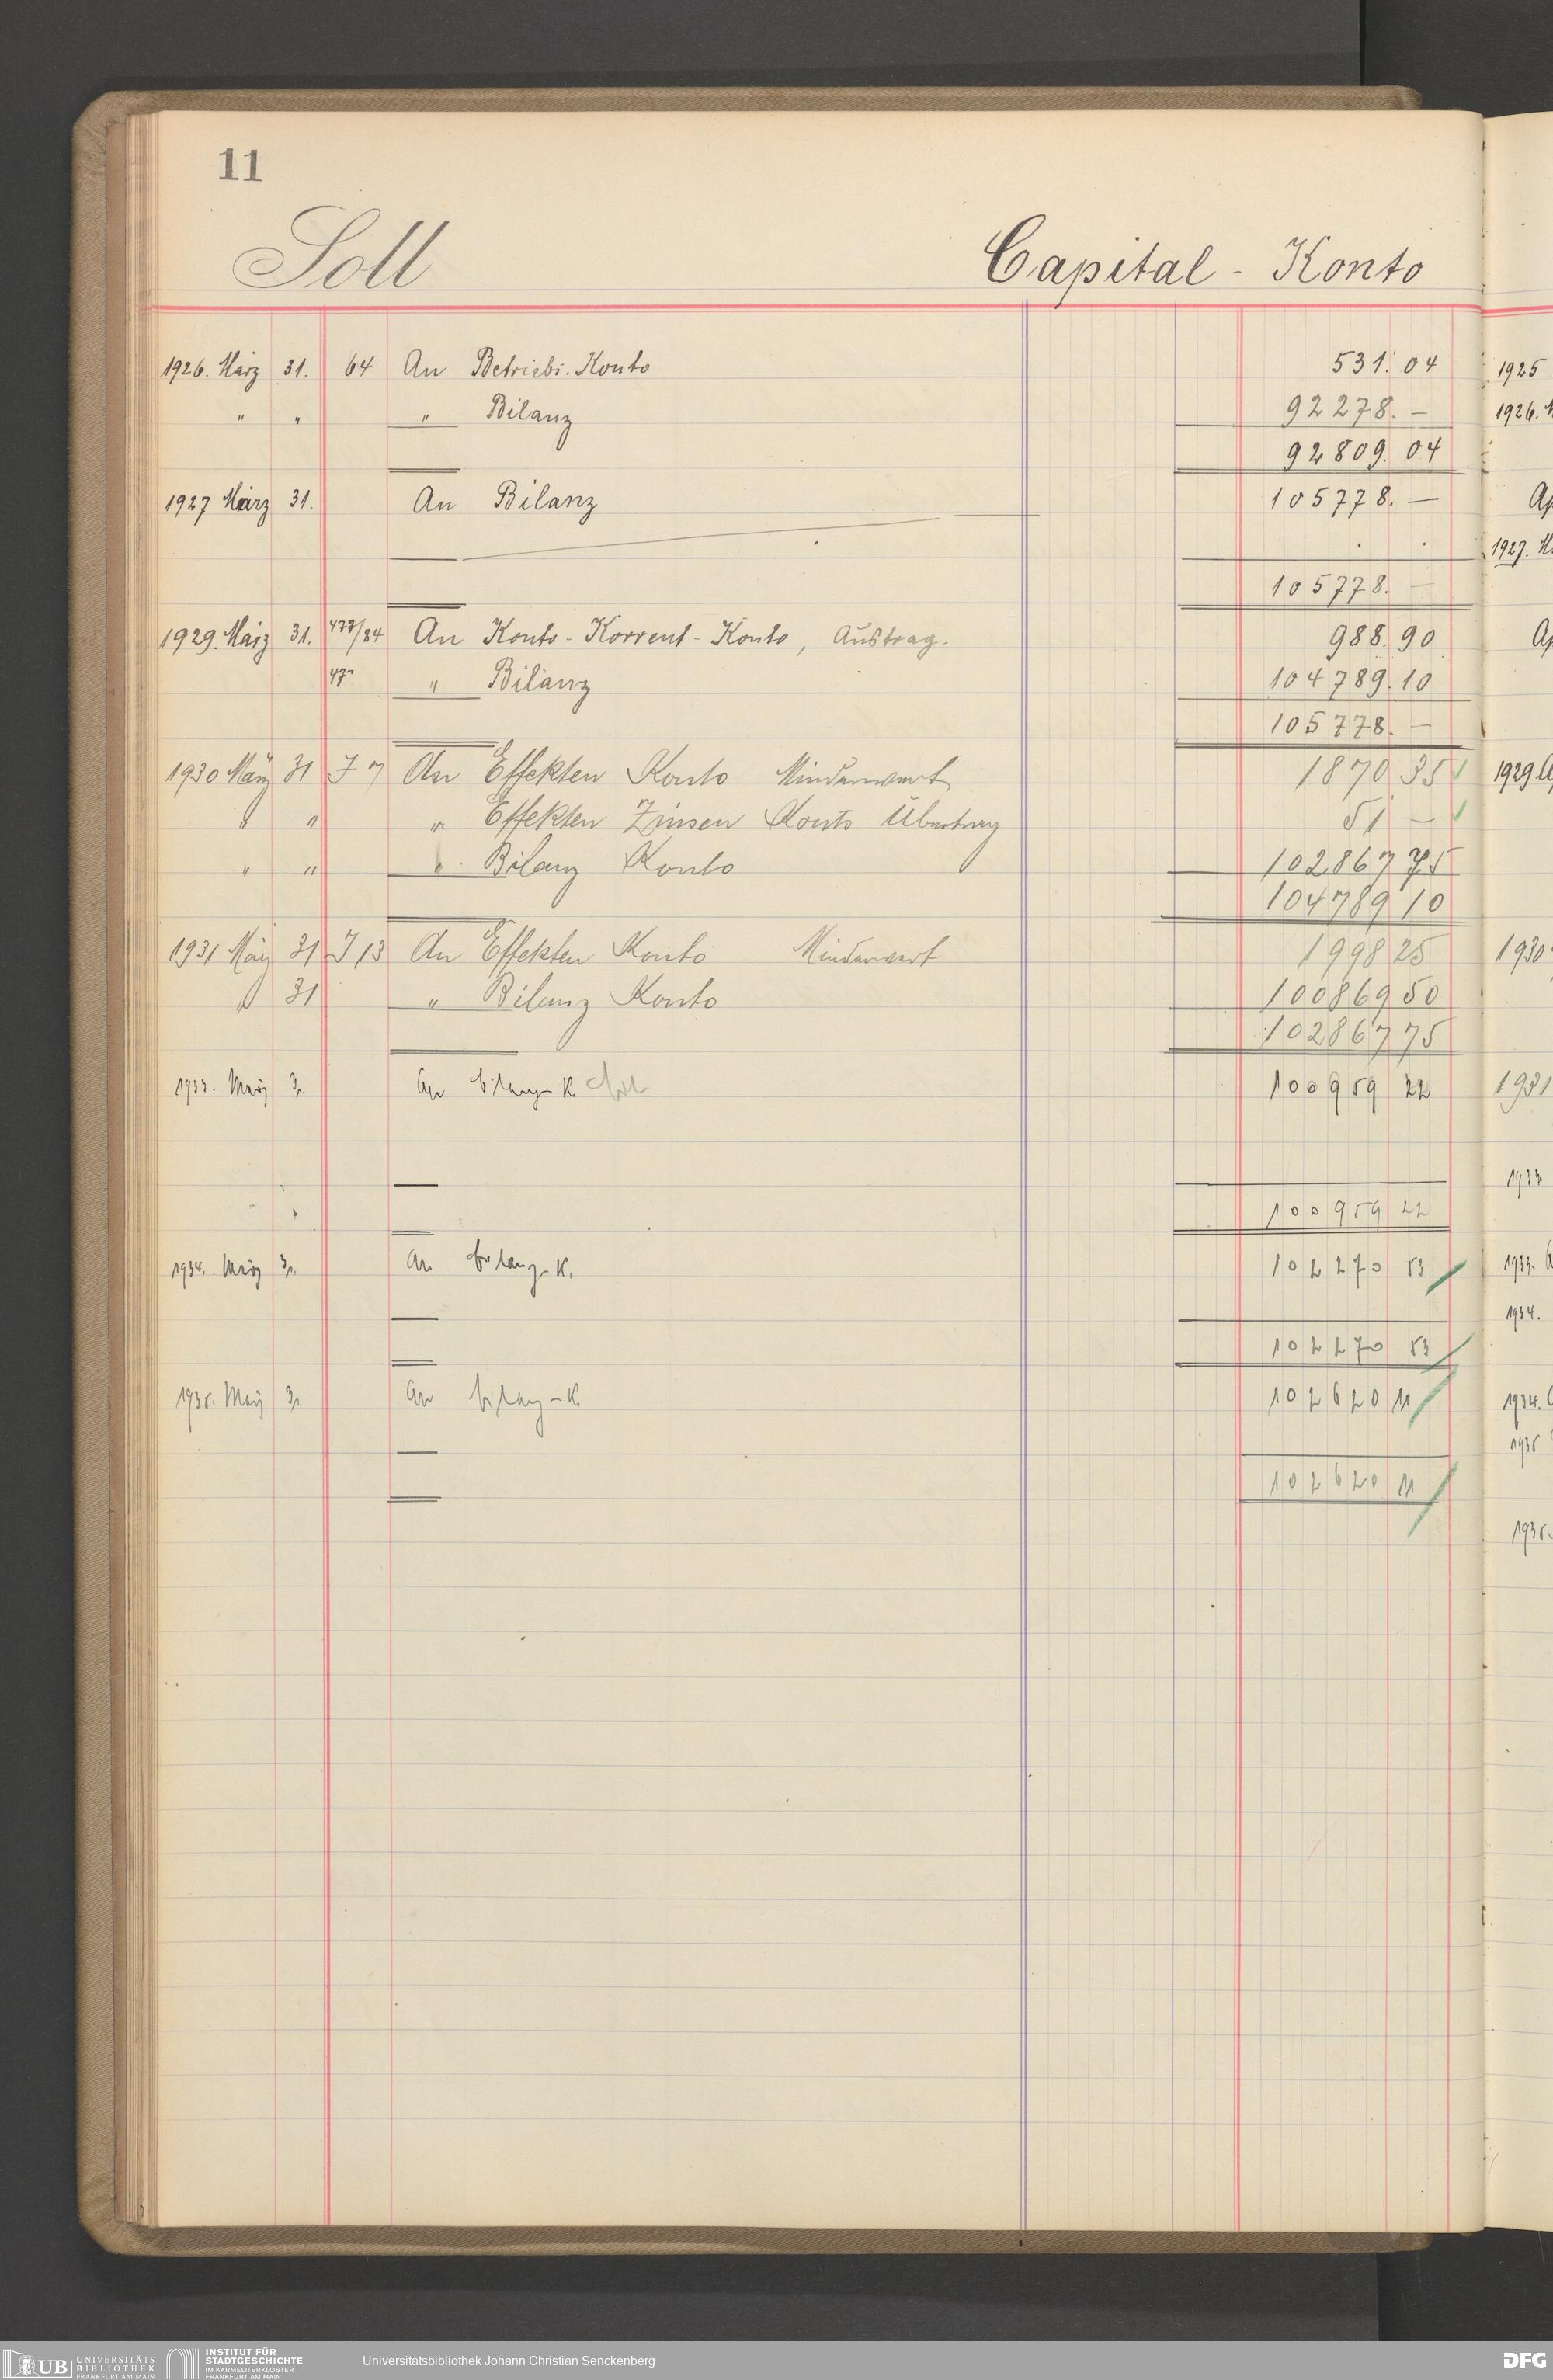 11
Soll Capital - Konto
1926. März 31. 64 An Betriebs. Konto 531. 04
" " " Bilanz 92278. —
92809. 04
1927 März 31. An Bilanz 105778. —
105778. —
1929. März 31. 477/84 An Konto - Korrent - Konto, Austrag. 988. 90
" Bilanz 104789. 10
105778. —
1930 März 31 J 7 An Effekten Konto Minderwert 1870 35
" " " Effekten Zinsen Konto Übertrag 51 —
" " " Bilanz Konto 102867 75
104789 10
1931 März 31 J 13 An Effekten Konto Minderwert 1998 25
" 31 " Bilanz Konto 100869 50
102867 75
1933. März 31. An Bilanz-K 100959 22
100959 22
1934. März 31. An Bilanz-K. 102270 53
102270 53
1935. März 31 An Bilanz-K 102620 11
102620 11
1925
1926.
1927.
1929
1930
1931
1933
1933.
1934.
1934.
1935
1935.
UB UNIVERSITÄTS
BIBLIOTHEK
FRANKFURT AM MAIN
INSTITUT FÜR
STADTGESCHICHTE
IM KARMELITERKLOSTER
FRANKFURT AM MAIN
Universitätsbibliothek Johann Christian Senckenberg
DFG